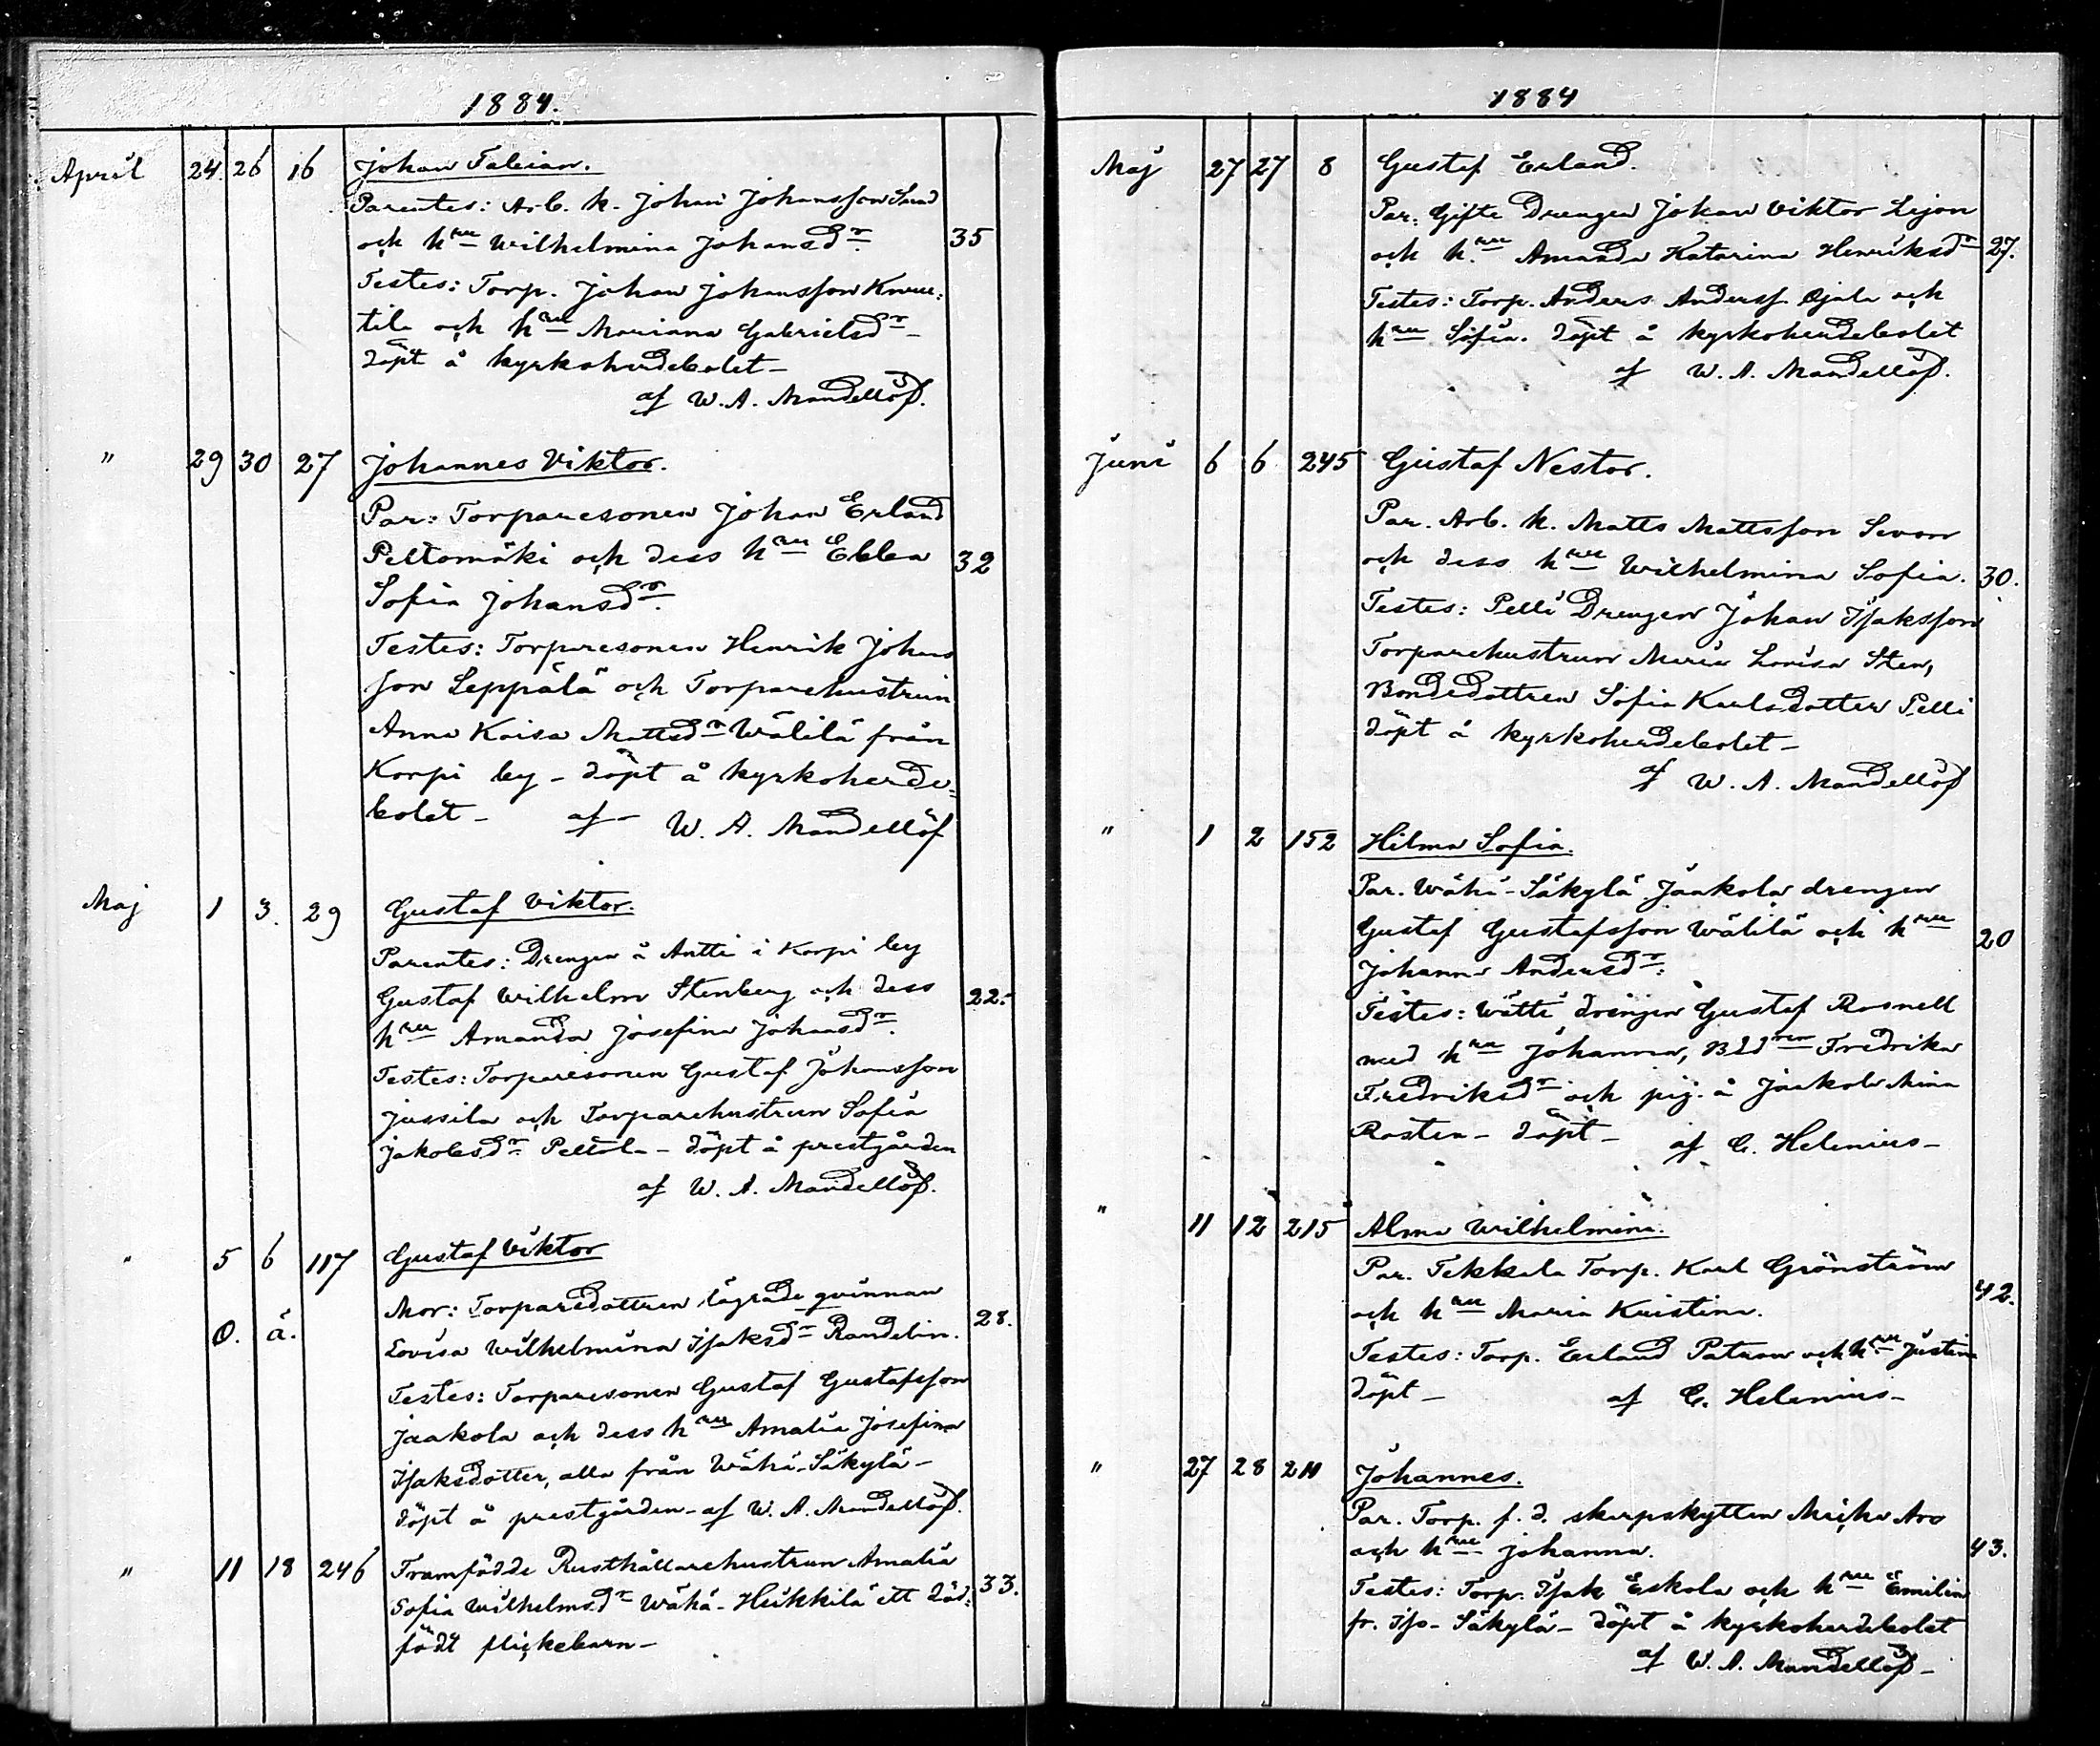 1884.
April 24 26 16 Johan Fabian.
Parentes: Arb. k. Johan Johansson Sund
och hru Wilhelmina Johansdr 35
Testes: Torp. Johan Johansson Knuu-
tila och hru Mariana Gabrielsdr –
döpt å kyrkoherdebolet –
af W. A. Mandellöf.
" 29 30 27 Johannes Viktor.
Par: Torparesonen Johan Erland
Peltomäki och dess hru Ebba 32
Sofia Johansdr.
Testes: Torparesonen Henrik Johans
son Leppälä och Torparehustrun
Anna Kaisa Mattsdr Wälilä från
Korpi by – döpt å kyrkoherde-
bolet – af – W. A. Mandellöf
Maj 1 3. 29 Gustaf Viktor.
Parentes: Drengen å Antti i Korpi by
Gustaf Wilhelm Stenberg och dess 22.
hru Amanda Josefina Johansdr.
Testes: Torparesonen Gustaf Johansson
Jussila och Torparehustrun Sofia
Jakobsdr Peltola – döpt å prestgården
af W. A. Mandellöf.
" 5 6 117 Gustaf Viktor
Mor: Torparedottren, lägrade qvinnan
O. ä. Lovisa Wilhelmina Isaksdr Randelin. 28.
Testes: Torparesonen Gustaf Gustafsson
Jaakola och dess hru Amalia Josefina
Isaksdotter, alla från Wähä-Säkylä –
döpt å prestgården – af W. A. Mandellöf.
" 11 18 246 Framfödde Rusthållarehustrun Amalia
Sofia Wilhelmsdr Wähä-Heikkilä ett död- 33.
födt flickebarn –
1884
Maj 27 27 8 Gustaf Erland.
Par: Gifte Drengen Johan Viktor Lejon
och hru Amanda Katarina Henriksdr 27.
Testes: Torp. Anders Anderss. Ojala och
hru Sofia. döpt å kyrkoherdebolet
af W. A. Mandellöf.
Juni 6 6 245 Gustaf Nestor.
Par. Arb. k. Matts Mattsson Sevon
och dess hru Wilhelmina Sofia. 30.
Testes: Pelli Drengen Johan Isaksson
Torparehustrun Maria Lovisa Sten,
Bondedottren Sofia Karlsdotter Pelli
döpt å kyrkoherdebolet –
af W. A. Mandellöf
" 1 2 152 Hilma Sofia.
Par. Wähä-Säkylä Jaakola drengen
Gustaf Gustafsson Wälilä och hru 20
Johanna Andersdr.
Testes: Wätti drängen Gustaf Rosnell
med hru Johanna, Bddren Fredrika
Fredriksdr och pig. å Jaakola Mina
Rosten – döpt – af C. Helenius –
" 11 12 215 Alma Wilhelmina.
Par. Tekkala Torp. Karl Grönström
och hru Maria Kristina. 42.
Testes: Torp. Erland Patron och hru Justina
döpt – af C. Helenius –
" 27 28 211 Johannes.
Par. Torp. f. d. skarpskytten Micha Aro
och hru Johanna. 43.
Testes: Torp. Isak Eskola och hru Emilia
fr. Iso-Säkylä – döpt å kyrkoherdebolet
af W. A. Mandellöf –